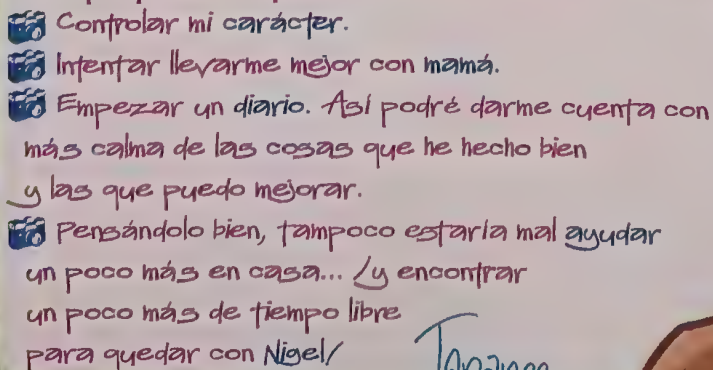 Controlar mi carácter.
Intentar llevarme mejor con mamá.
Empezar un diario. Así podré darme cuenta con
más calma de las cosas que he hecho bien
y las que puedo mejorar.
Pensándolo bien, tampoco estaría mal ayudar
un poco más en casa... ¡y encontrar
un poco más de tiempo libre
para quedar con Nigel!